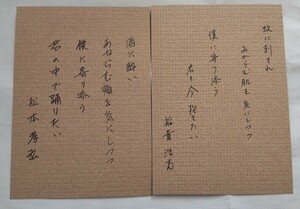 蚊に刺され
あからむ肌を気にしつつ
僕に寄り添う
君を今抱きたい
稲葉浩志
酒に酔い
あからむ頬を気にしつつ
僕に寄り添う
君の中で踊りたい
松本孝弘